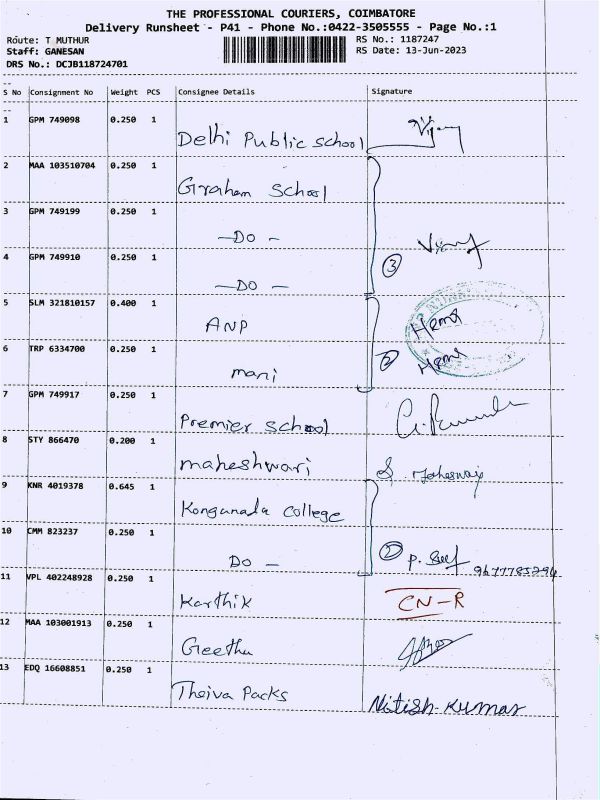 THE PROFESSIONAL COURIERS, COIMBATORE
Delivery Runsheet - P41 - Phone No.:0422-3505555 - Page No.:1
Route: T MUTHUR
RS No.: 1187247
Staff: GANESAN
RS Date: 13-Jun-2023
DRS No.: DCJB118724701
S No Consignment No Weight PCS Consignee Details Signature
1 GPM 749098 0.250 1
Delhi Public School Vijay
2 MAA 103510704 0.250 1
Graham School
3 GPM 749199 0.250 1
-DO-
4 GPM 749910 0.250 1
-DO- 3
5 SLM 321810157 0.400 1
ANP Hema
6 TRP 6334700 0.250 1
mani 2 Hema
7 GPM 749917 0.250 1
Premier School
8 STY 866470 0.200 1
maheshwari
9 KNR 4019378 0.645 1
Kongunada College
10 CMM 823237 0.250 1
DO - 2 P.
11 VPL 402248928 0.250 1
Karthik CN-R
12 MAA 103001913 0.250 1
Geetha
13 EDQ 16608851 0.250 1
Theiva Packs Nitish-Kumar